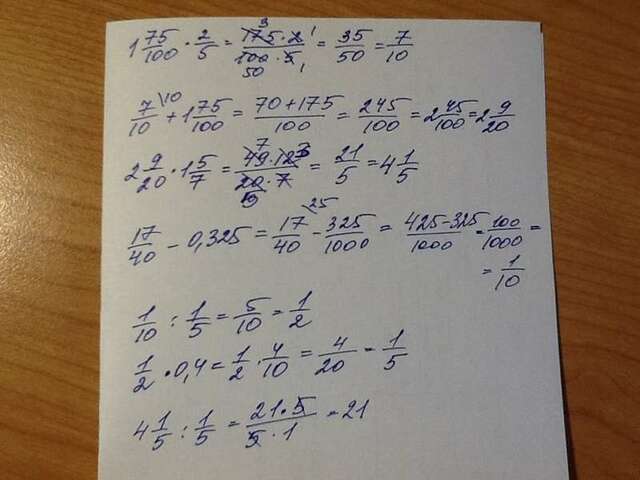 1 75/100 · 2/5 = 175·2/100·5 = 35/50 = 7/10
7/10 + 1 75/100 = 70+175/100 = 245/100 = 2 45/100 = 2 9/20
2 9/20 · 1 5/7 = 49·12/20·7 = 21/5 = 4 1/5
17/40 - 0,325 = 17/40 - 325/1000 = 425-325/1000 = 100/1000 =
= 1/10
1/10 : 1/5 = 5/10 = 1/2
1/2 · 0,4 = 1/2 · 4/10 = 4/20 = 1/5
4 1/5 : 1/5 = 21·5/5·1 = 21